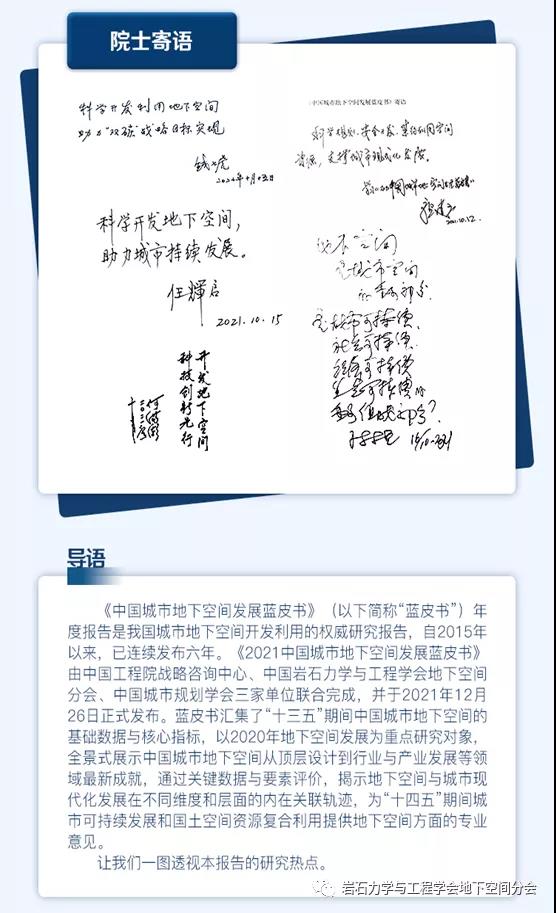 院士寄语
科学开发利用地下空间
助力“双碳”战略目标实现
钱七虎
科学开发地下空间，
助力城市持续发展。
任辉启
2021.10.15
开发地下空间
科技创新先行
《中国城市地下空间发展蓝皮书》寄语
2021.10.12.
地下空间
是城市空间
导语
《中国城市地下空间发展蓝皮书》（以下简称“蓝皮书”）年
度报告是我国城市地下空间开发利用的权威研究报告，自2015年
以来，已连续发布六年。《2021中国城市地下空间发展蓝皮书》
由中国工程院战略咨询中心、中国岩石力学与工程学会地下空间
分会、中国城市规划学会三家单位联合完成，并于2021年12月
26日正式发布。蓝皮书汇集了“十三五”期间中国城市地下空间的
基础数据与核心指标，以2020年地下空间发展为重点研究对象，
全景式展示中国城市地下空间从顶层设计到行业与产业发展等领
域最新成就，通过关键数据与要素评价，揭示地下空间与城市现
代化发展在不同维度和层面的内在关联轨迹，为“十四五”期间城
市可持续发展和国土空间资源复合利用提供地下空间方面的专业
意见。
让我们一图透视本报告的研究热点。
岩石力学与工程学会地下空间分会